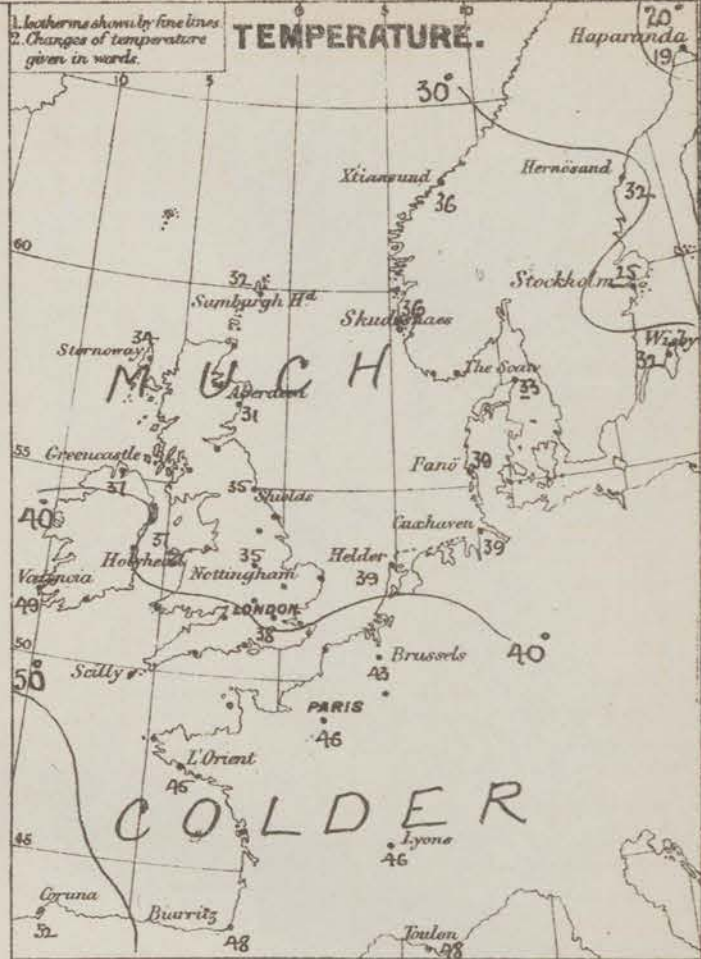 1. Isotherms shown by fine lines
2. Changes of temperature
given in words.
TEMPERATURE.
10
5
0
5
10
20°
Haparanda
19
30°
Xtiansund
36
Hernösand
32
60
32
Sumburgh Hd
Stockholm
25
36
Skudesnaes
Wisby
32
34
Stornoway
MUCH
The Scaw
33
Aberdeen
31
55
Greencastle
37
35
Shields
Fanö
38
40°
37
Holyhead
35
Nottingham
Helder
39
Cuxhaven
39
Valencia
49
LONDON
38
50
50°
Scilly
Brussels
43
40°
PARIS
46
L'Orient
45
COLDER
45
Lyons
46
Coruna
52
Biarritz
48
Toulon
48